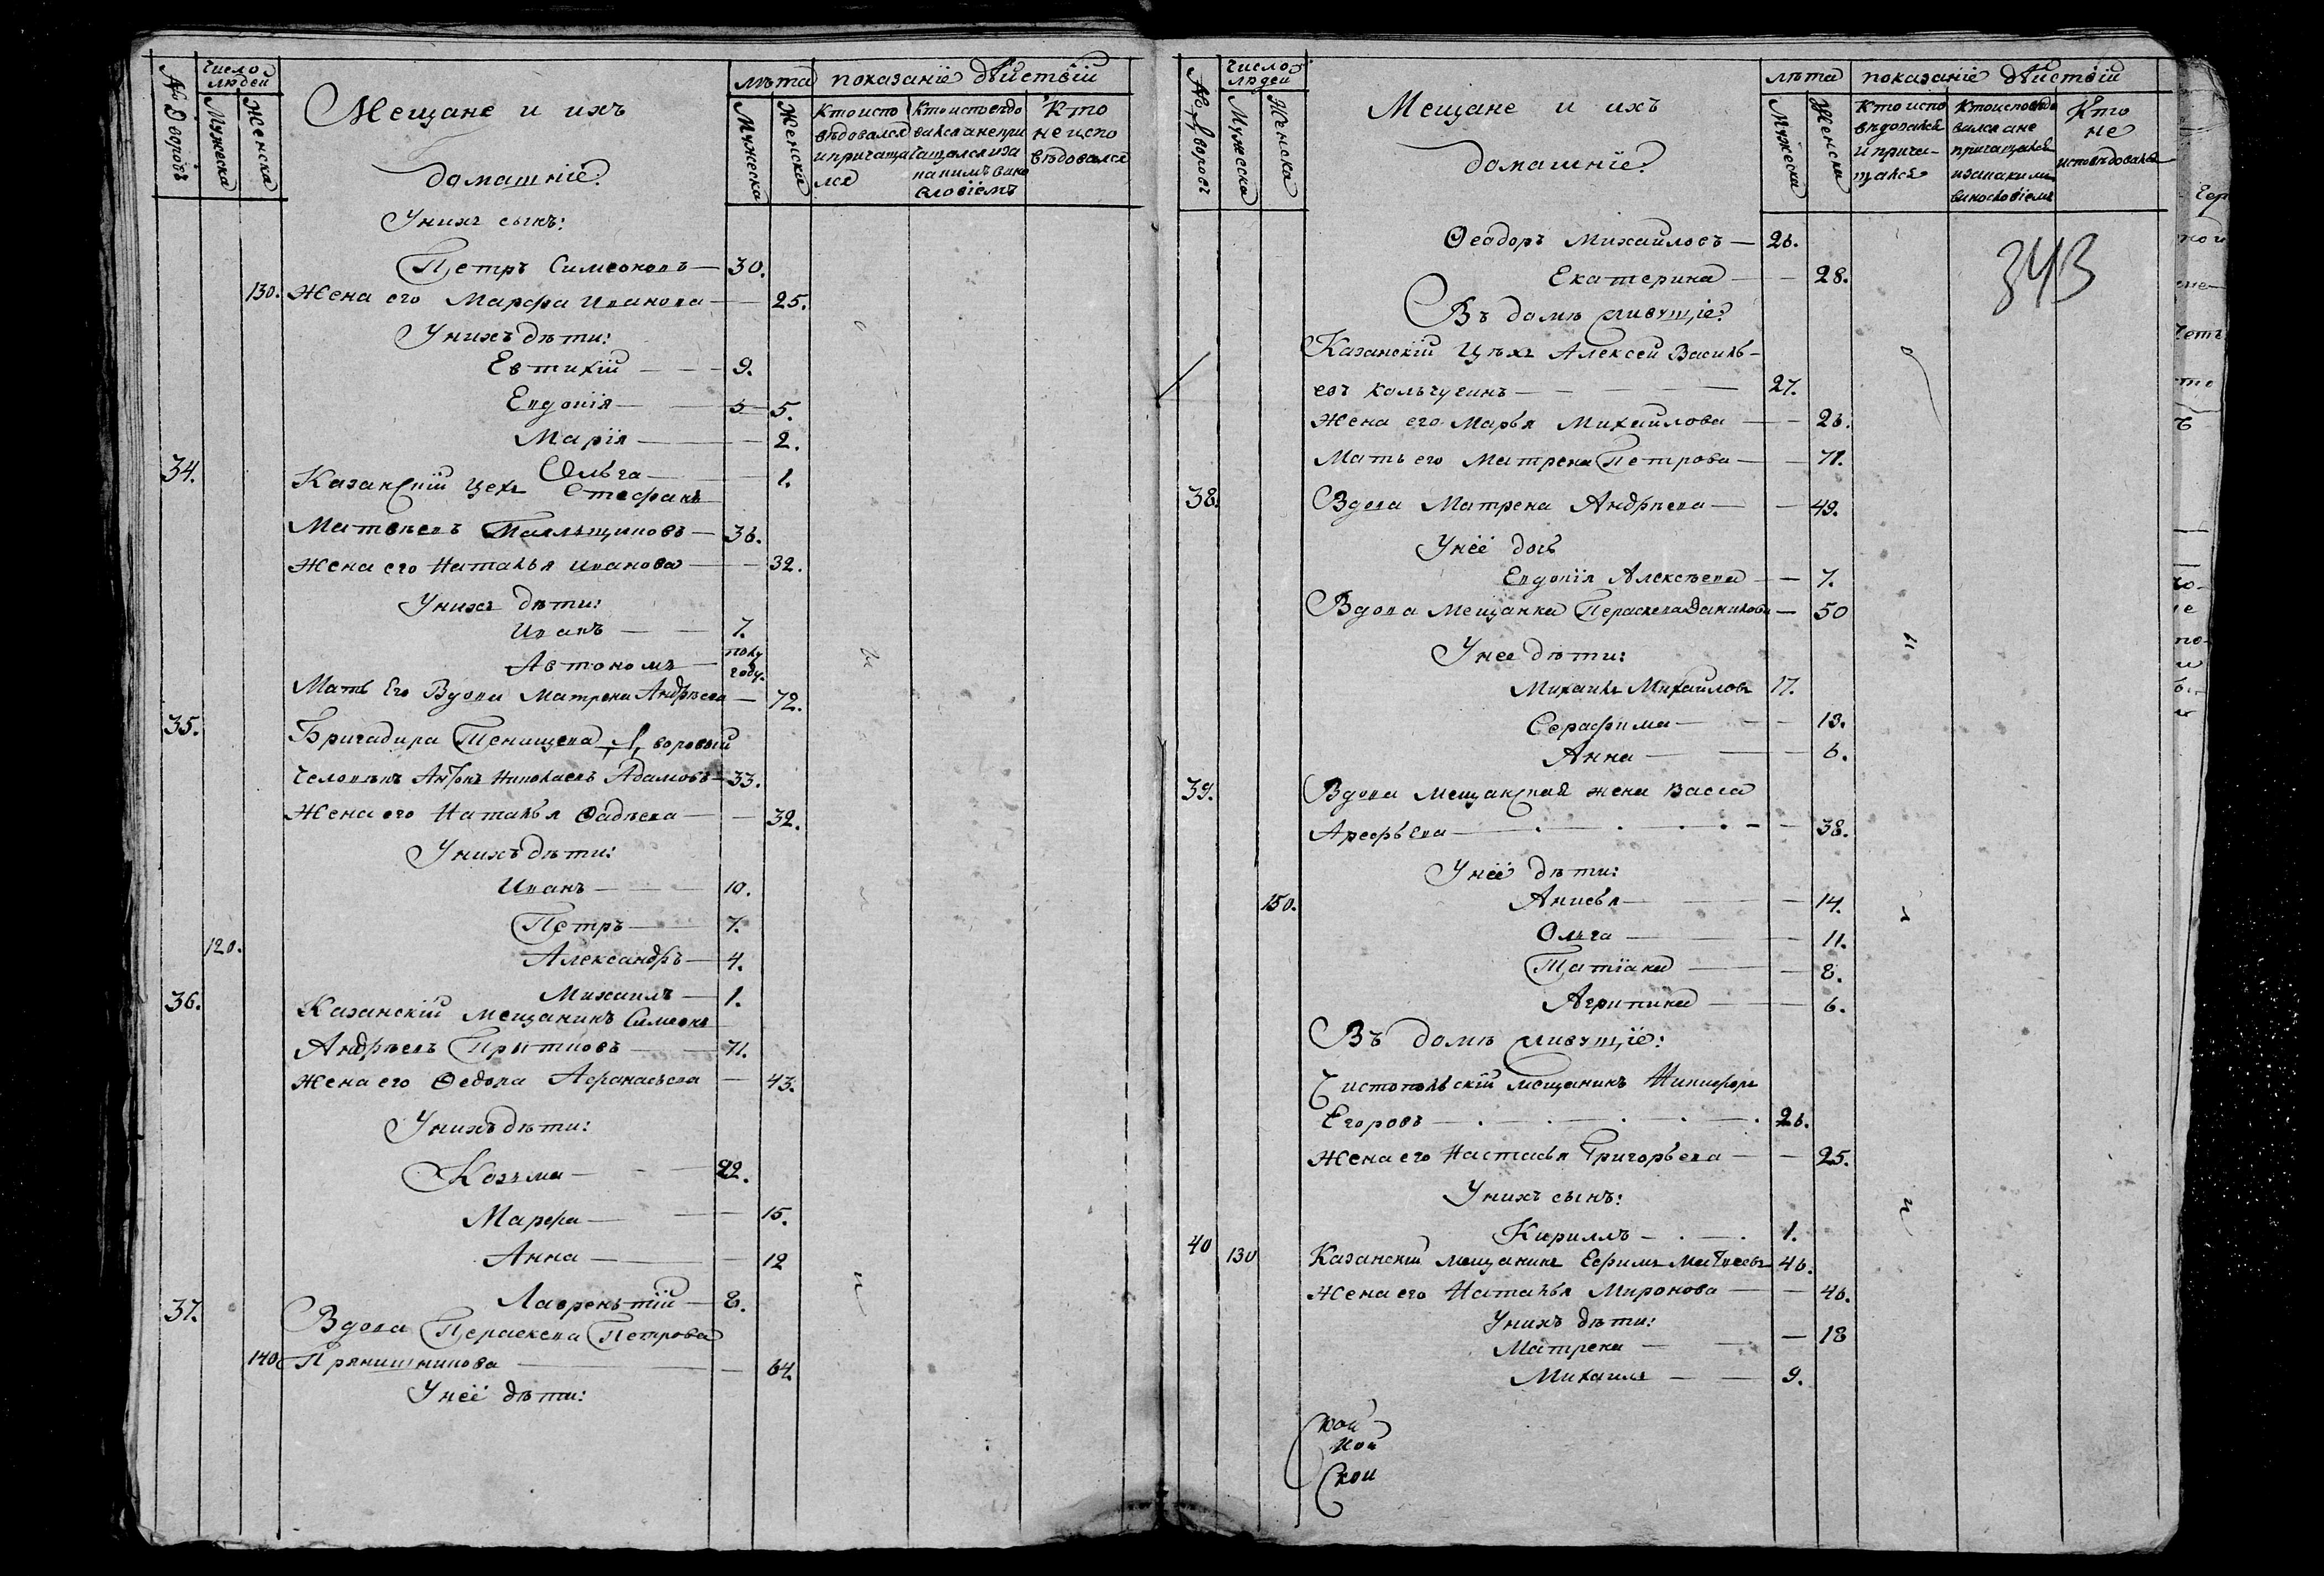 № Дворовъ
Число людей
Мужеска
Женска
Мещане и ихъ
домашнiе.
лѣта
Мужеска
Женска
показанiе дѣйствiй
Кто испо
вѣдовался
и причаща
лся
Кто исповѣдо
вался а не при
чащался и за
какимъ вино
словiемъ
Кто
не испо
вѣдовался
У нихъ сынъ:
Петръ Симеоновъ — 30.
130. Жена его Марфа Иванова — 25.
У нихъ дѣти:
Евтихiй — 9.
Евдокiя — 5.
Марiя — 2.
Ольга — 1.
34. Казанскiй цехъ Стефанъ
Матвѣевъ — 36.
Жена его Наталья Иванова — 32.
У нихъ дѣти:
Иванъ — 7.
Автономъ — полу
году.
Мать Его Вдова Матрена Андрѣева — 72.
35. Бригадира Тенищева Дворовый
человѣкъ Антонъ Николаевъ Адамовъ — 33.
Жена его Наталья Фадѣева — 32.
У нихъ дѣти:
Иванъ — 10.
Петръ — 7.
120. Александръ — 4.
Михаилъ — 1.
36. Казанскiй мещанинъ Симеонъ
Андрѣевъ Прытковъ — 71.
Жена его Федора Афанасьева — 43.
У нихъ дѣти:
Козьма — 22.
Марфа — 15.
Анна — 12
Лаврентiй — 8.
37. Вдова Пераскева Петрова
140. Прянишникова — 64.
У неё дѣти:
№ Дворовъ
Число людей
Мужеска
Женска
Мещане и ихъ
домашнiе.
лѣта
Мужеска
Женска
показанiе дѣйствiй
Кто испо
вѣдовался
и прича-
щался
Кто исповѣдо
вался а не
причащался
и за какимъ
винословiемъ
Кто
не
исповѣдовался
343
Феодоръ Михайловъ — 26.
Екатерина — 28.
Въ домѣ живущiе:
Казанскiй Цѣхъ Алексей Василь-
евъ Кольчугинъ — 27.
Жена его Марья Михайлова — 26.
Мать его Матрена Петрова — 71.
38. Вдова Матрена Андрѣева — 49.
У неё дочь
Евдокiя Алексѣева — 7.
Вдова Мещанка Пераскева Данилова — 50
У нее дѣти:
Михаилъ Михайловъ 17.
Серафима — 13.
Анна — 6.
39. Вдова Мещанская жена Васса
Арефьева — 38.
У неё дѣти:
150. Анисья — 14.
Ольга — 11.
Татiана — 8.
Агрипина — 6.
Въ домѣ живущiе:
Чистопольскiй мещанинъ Никифоръ
Егоровъ — 26.
Жена его Настасья Григорьева — 25.
У нихъ сынъ:
Кириллъ — 1.
40 130 Казанскiй мещанинъ Ефимъ Матвеевъ 46.
Жена его Наталья Миронова — 46.
У нихъ дѣти:
Матрена — 18
Михаилъ — 9.
кой
кой
ской